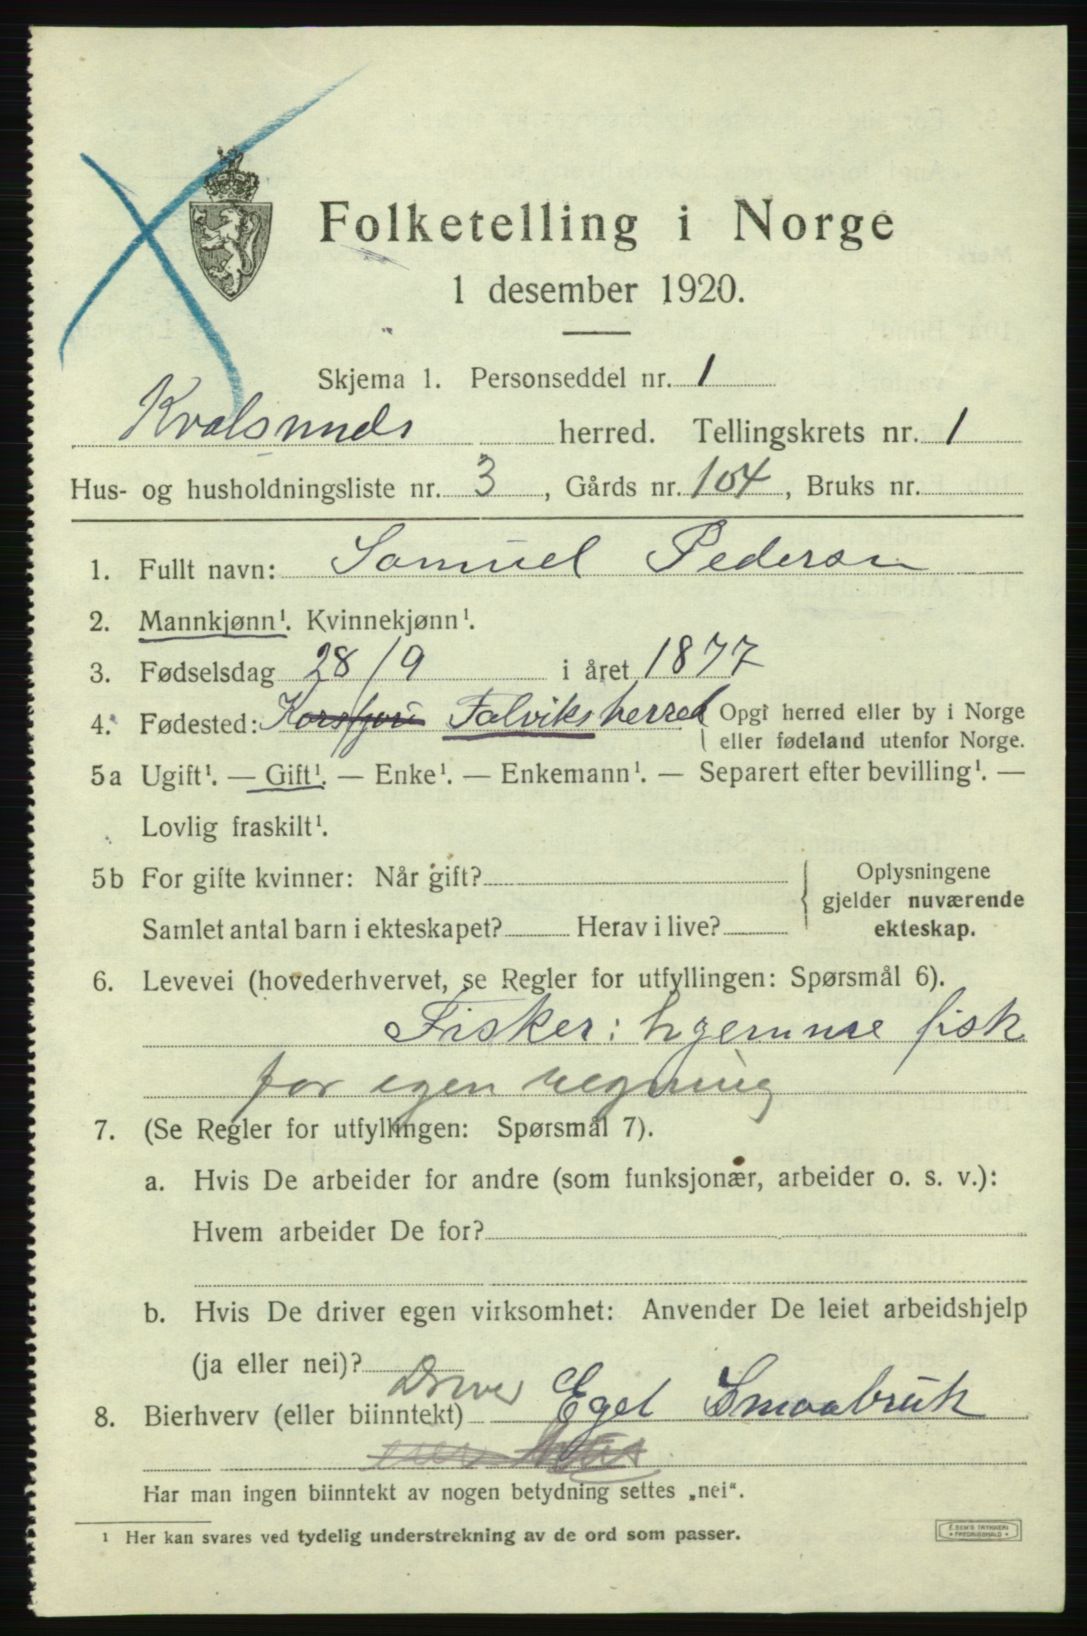 Folketelling i Norge
1 desember 1920.
Skjema 1. Personseddel nr. 1
Kvalsunds herred. Tellingskrets nr. 1
Hus- og husholdningsliste nr. 3, Gårds nr. 104, Bruks nr.
1. Fullt navn: Samuel Pedersen
2. Mannkjønn¹. Kvinnekjønn¹.
3. Fødselsdag 28/9 i året 1877
4. Fødested: Korsfjord Talviks herred Opgi herred eller by i Norge
eller fødeland utenfor Norge.
5a Ugift¹. — Gift¹. — Enke¹. — Enkemann¹. — Separert efter bevilling¹. —
Lovlig fraskilt¹.
5b For gifte kvinner: Når gift? Oplysningene
gjelder nuværende
Samlet antal barn i ekteskapet? Herav i live? ekteskap.
6. Levevei (hovederhvervet, se Regler for utfyllingen: Spørsmål 6).
Fisker: hjemme fisk
for egen regning
7. (Se Regler for utfyllingen: Spørsmål 7).
a. Hvis De arbeider for andre (som funksjonær, arbeider o. s. v.):
Hvem arbeider De for?
b. Hvis De driver egen virksomhet: Anvender De leiet arbeidshjelp
(ja eller nei)?
Driver
8. Bierhverv (eller biinntekt) Eget Smaabruk
Har man ingen biinntekt av nogen betydning settes „nei“.
¹ Her kan svares ved tydelig understrekning av de ord som passer.
E. SEM'S TRYKKERI
FREDRIKSHALD